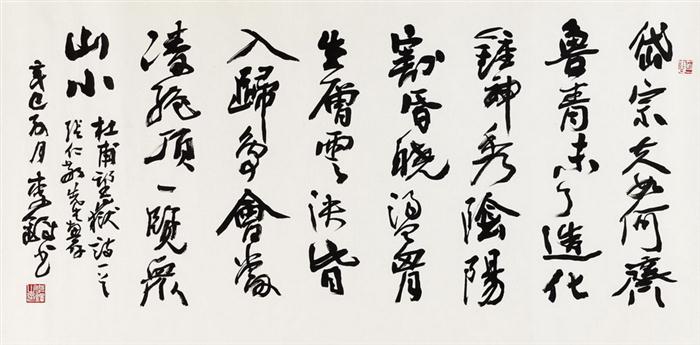 岱宗夫如何齊
魯青未了造化
鍾神秀陰陽
割昏曉盪胷
生層雲決眥
入歸鳥會當
凌絶頂一覽眾
山小
杜甫望嶽詩一
張仁先生
辛巳月李鐸書